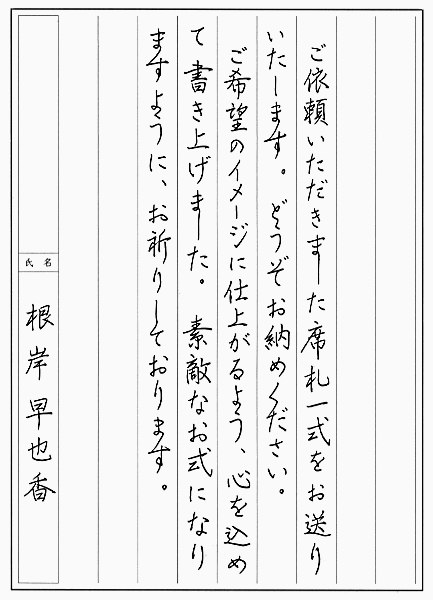 ご依頼いただきました席札一式をお送り
いたします。どうぞお納めください。
ご希望のイメージに仕上がるよう、心を込め
て書き上げました。素敵なお式になり
ますように、お祈りしております。
氏名
根岸早也香